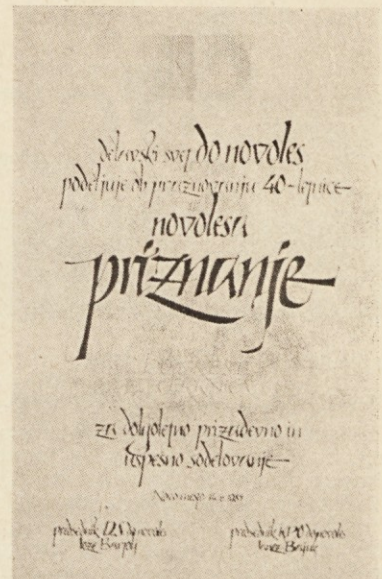 delavski svet do novoles
podeljuje ob praznovanju 40-letnice
novolesa
priznanje
za dolgoletno prizadevno in
uspešno sodelovanje
Novo mesto
predsednik do novoles
Jože
predsednik do novoles